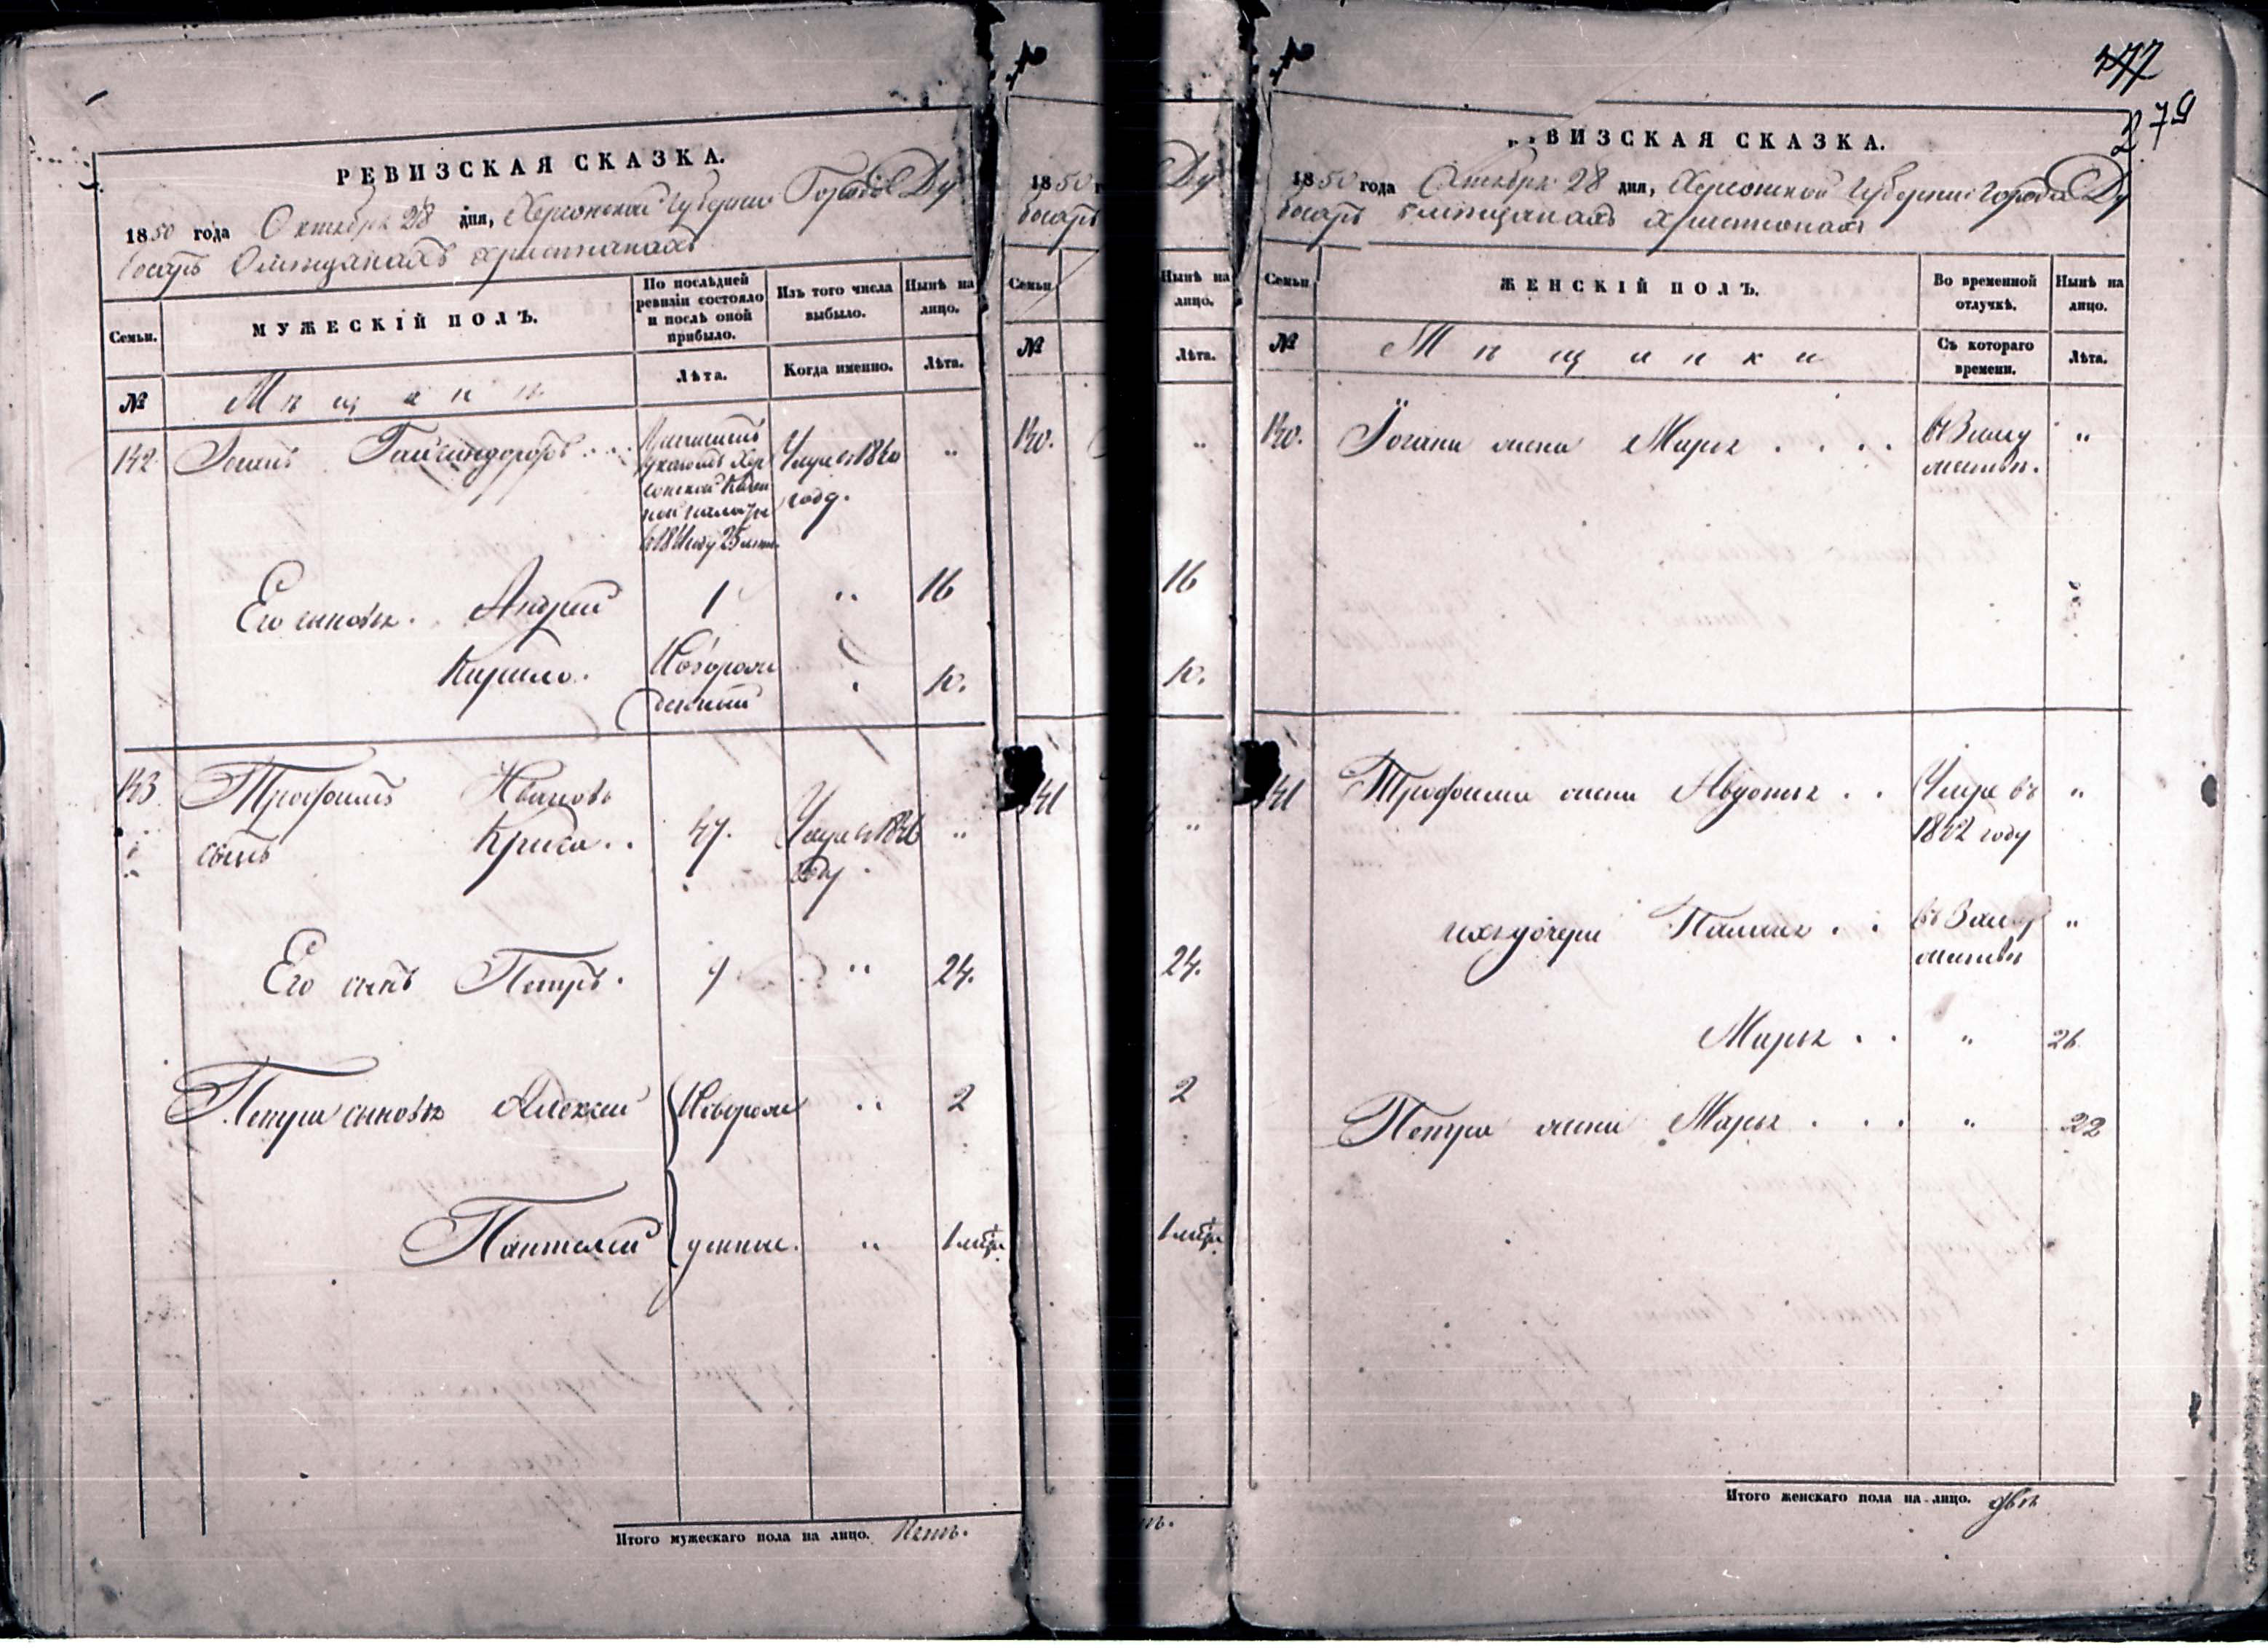 РЕВИЗСКАЯ СКАЗКА.
1850 года Октября 28 дня, Херсонской Губернии Города Ду
босаръ О мѣщанахъ христіанахъ
Семьи.
МУЖЕСКІЙ ПОЛЪ.
По послѣдней
ревизіи состояло
и послѣ оной
прибыло.
Изъ того числа
выбыло.
Нынѣ на
лицо.
№
Мѣщане
Лѣта.
Когда именно.
Лѣта.
142.
Умеръ 1840
году.
"
сонской Казен
ной палаты
25 лѣтъ.
Его сыновья. Андрей 1 " 16
Кирило. Новорож
денный " 10.
143 Трофимъ Ивановъ
сынъ Крига.. 47. Умеръ 1846
году. "
Его сынъ Петръ. 9 " 24.
Петра сыновья Алексей Новорож " 2
Пантелей денные. " 1 мѣся.
Итого мужескаго пола на лицо. Пять.
1850 г
босаръ
Ду
Семьи
Нынѣ на
лицо.
№
Лѣта.
140. "
16
10.
141 "
24.
2
1 мѣся.
277
279
ВИЗСКАЯ СКАЗКА.
1850 года Октября 28 дня, Херсонской Губерніи Города Ду
босаръ О мѣщанахъ христіанахъ
Семьи
ЖЕНСКІЙ ПОЛЪ.
Во временной
отлучкѣ.
Нынѣ на
лицо.
№
Мѣщанки
Съ котораго
времени.
Лѣта.
140. жена Марья.... въ Замуж
жествѣ. "
141 Трофима жена Авдотья.. Умре въ
1842 году "
ихъ дочери Палажка.. въ Замуж
жествѣ "
Марья.. " 26.
Петра жена Марья... " 22
Итого женскаго пола на-лицо. двѣ